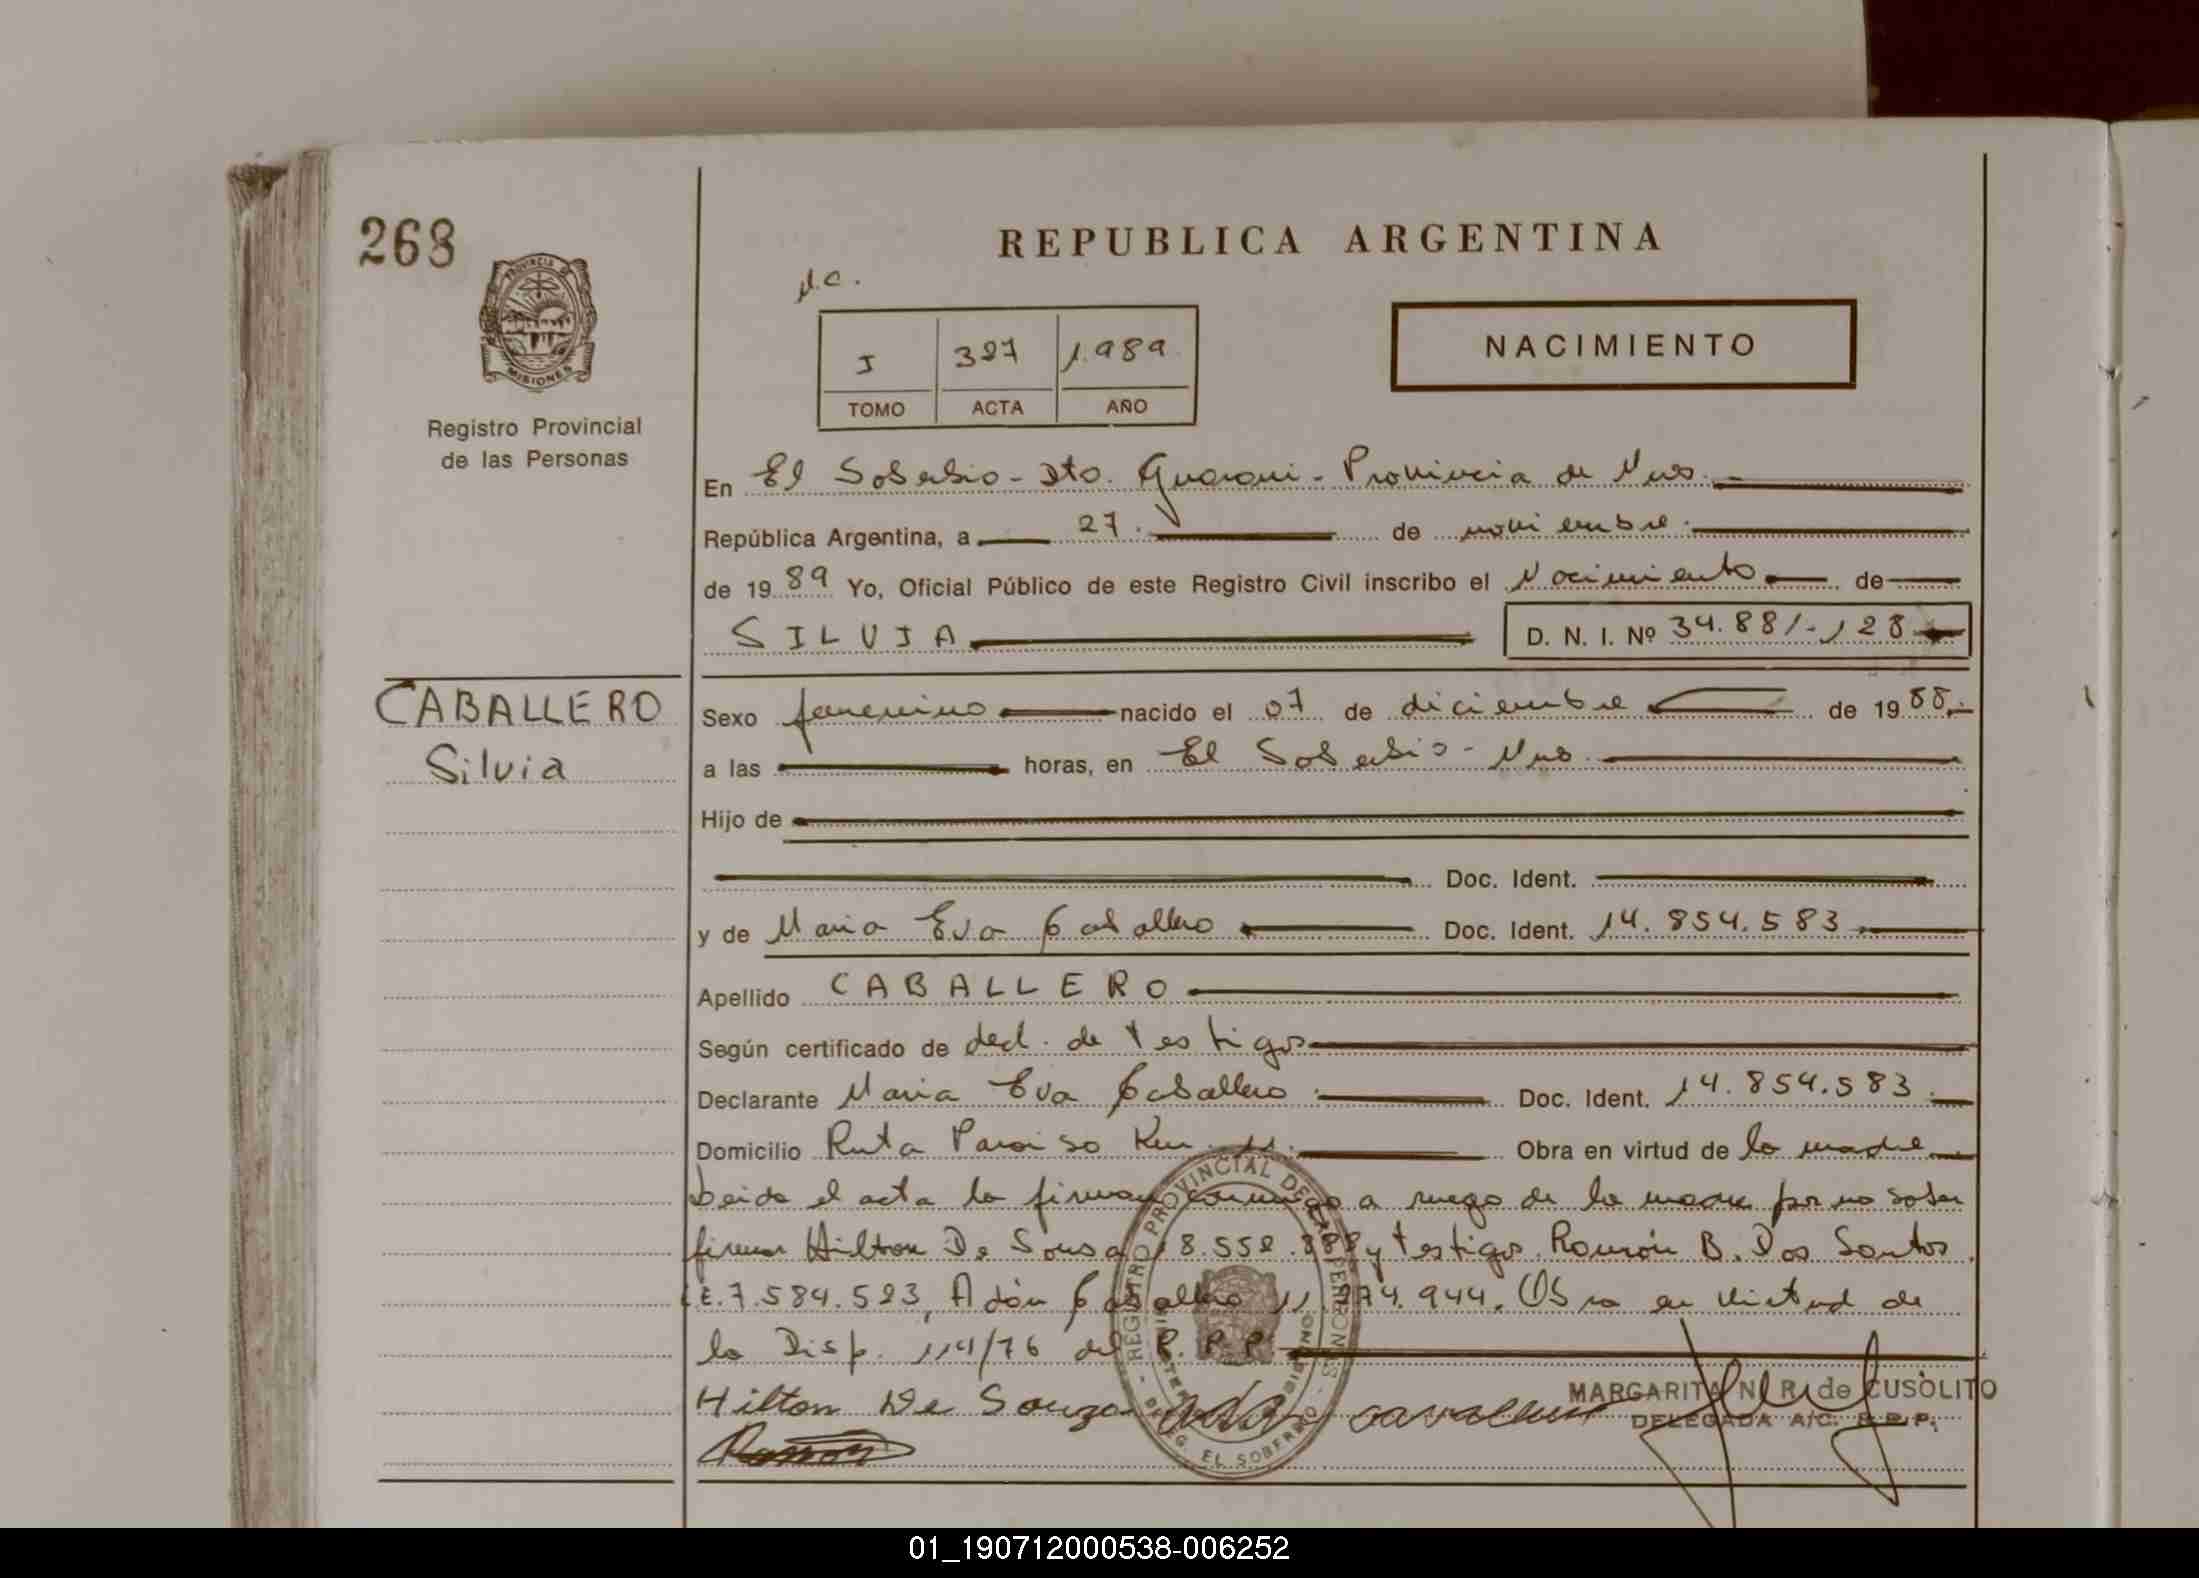 268
REPUBLICA ARGENTINA
PROVINCIA DE
MISIONES
Registro Provincial
de las Personas
I 327 1.989
TOMO ACTA AÑO
NACIMIENTO
En El Soberbio - Dto. Guarani - Provincia de Mnes.
República Argentina, a 27. de noviembre.
de 1989 Yo, Oficial Público de este Registro Civil inscribo el Nacimiento de
SILVIA D. N. I. Nº 34.881.128
CABALLERO
Silvia
Sexo femenino nacido el 07 de diciembre de 1988.
a las horas, en El Soberbio - Mnes.
Hijo de
Doc. Ident.
y de Maria Eva Caballero Doc. Ident. 14.854.583
Apellido CABALLERO
Según certificado de decl. de testigos
Declarante Maria Eva Caballero Doc. Ident. 14.854.583
Domicilio Ruta Paraiso Km. 11. Obra en virtud de la madre
Leida el acta la firman conmigo a ruego de la madre por no saber
firmar Hilton De Sousa 18.552. y testigos Ramón B. Dos Santos
7.584.523, Adón Caballero 11.974.944. Obra en virtud de
la Disp. 114/76 del R.P.P.
Hilton De Souza
Ramon
MARGARITA N. R. de CUSOLITO
DELEGADA A/C. R.P.P.
REGISTRO PROVINCIAL DE LAS PERSONAS
DELEG. EL SOBERBIO
01_190712000538-006252